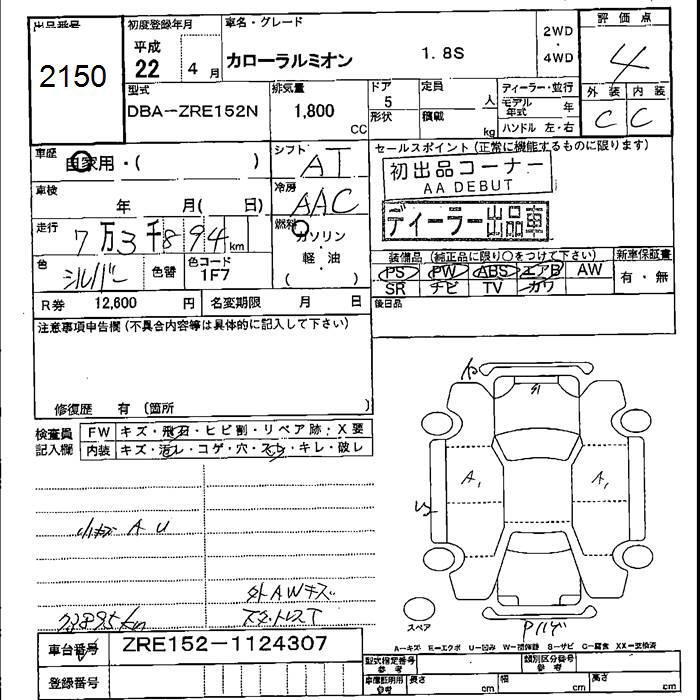 出品番号
2150
初度登録年月
平成
22 4 月
車名・グレード
カローラルミオン 1.8S
2WD
・
4WD
評価点
4
外装 内装
C C
型式
DBA-ZRE152N
排気量
1,800
CC
ドア
5
形状
定員
人
積載
kg
ディーラー・並行
モデル年式 年
ハンドル 左・右
車歴
自家用・( )
シフト
AT
車検
年 月( 日)
冷房
AAC
走行
7万3千894km
燃料
ガソリン
・
軽・油
( )
色
シルバー
色替
色コード
1F7
R券 12,600 円
名変期限 月 日
セールスポイント(正常に機能するものに限ります)
初出品コーナー
AA DEBUT
ディーラー出品車
装備品(純正品に限り○をつけて下さい)
PS PW ABS エアB AW
SR ナビ TV カワ
新車保証書
有・無
後日品
注意事項申告欄(不具合内容等は具体的に記入して下さい)
修復歴 有 (箇所 )
検査員
記入欄
FW キズ・飛石・ヒビ割・リペア跡・X要
内装 キズ・汚レ・コゲ・穴・スレ・キレ・破レ
小キズ A U
外AWキズ
車台番号 ZRE152-1124307
登録番号
A1
A1
スペア
A-キズ E-エクボ U-凹み W-補修跡 S-サビ C-腐食 XX-交換済
型式指定番号
参考
類別区分番号
参考
車庫証明用
参考
長さ cm
幅 cm
高さ cm